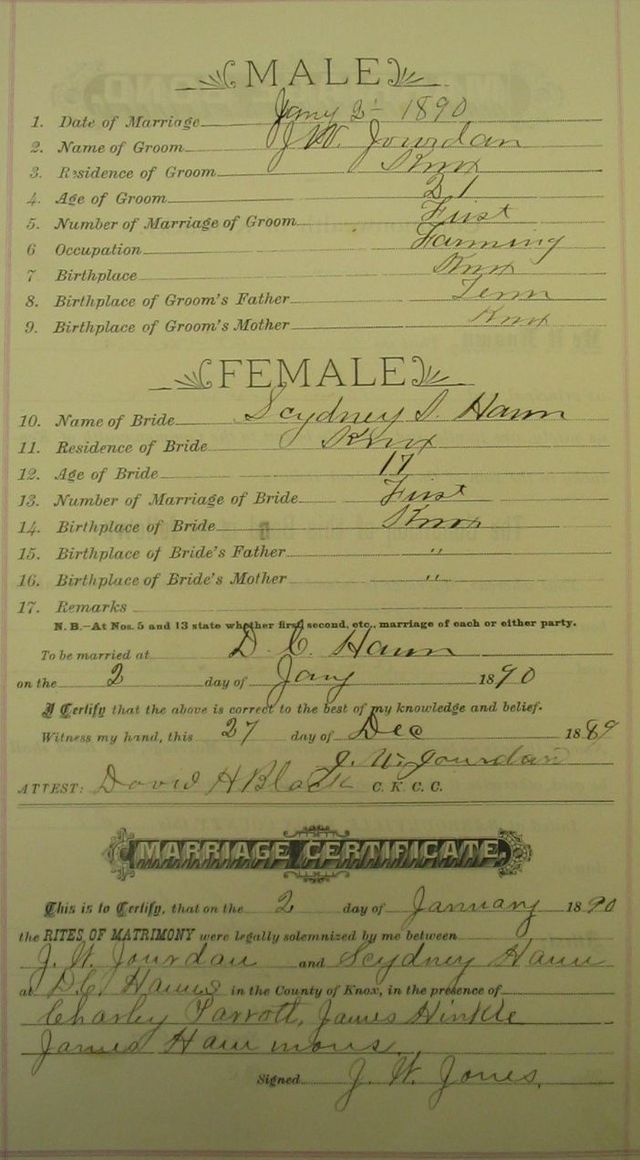 MALE
1. Date of Marriage Jany 2 1890
2. Name of Groom J W. Jourdan
3. Residence of Groom Knox
4. Age of Groom 21
5. Number of Marriage of Groom First
6 Occupation Farming
7 Birthplace Knox
8. Birthplace of Groom's Father Tenn
9. Birthplace of Groom's Mother Knx
FEMALE
10. Name of Bride Scydney S. Haun
11. Residence of Bride Knox
12. Age of Bride 17
13. Number of Marriage of Bride First
14. Birthplace of Bride Knox
15. Birthplace of Bride's Father "
16. Birthplace of Bride's Mother "
17. Remarks
N.B.—At Nos. 5 and 13 state whether first, second, etc., marriage of each or either party.
To be married at D. C. Haun
on the 2 day of Jany 1890
I Certify that the above is correct to the best of my knowledge and belief.
Witness my hand, this 27 day of Dec 1889
J. W. Jourdan
ATTEST: David H Black C. K. C. C.
MARRIAGE CERTIFICATE.
This is to Certify, that on the 2 day of January 1890
the RITES OF MATRIMONY were legally solemnized by me between
J. W. Jourdan and Scydney Haun
at D.C. Hauns in the County of Knox, in the presence of
Charley Parrott, James Hinkle
James Hammons
Signed J. W. Jones,